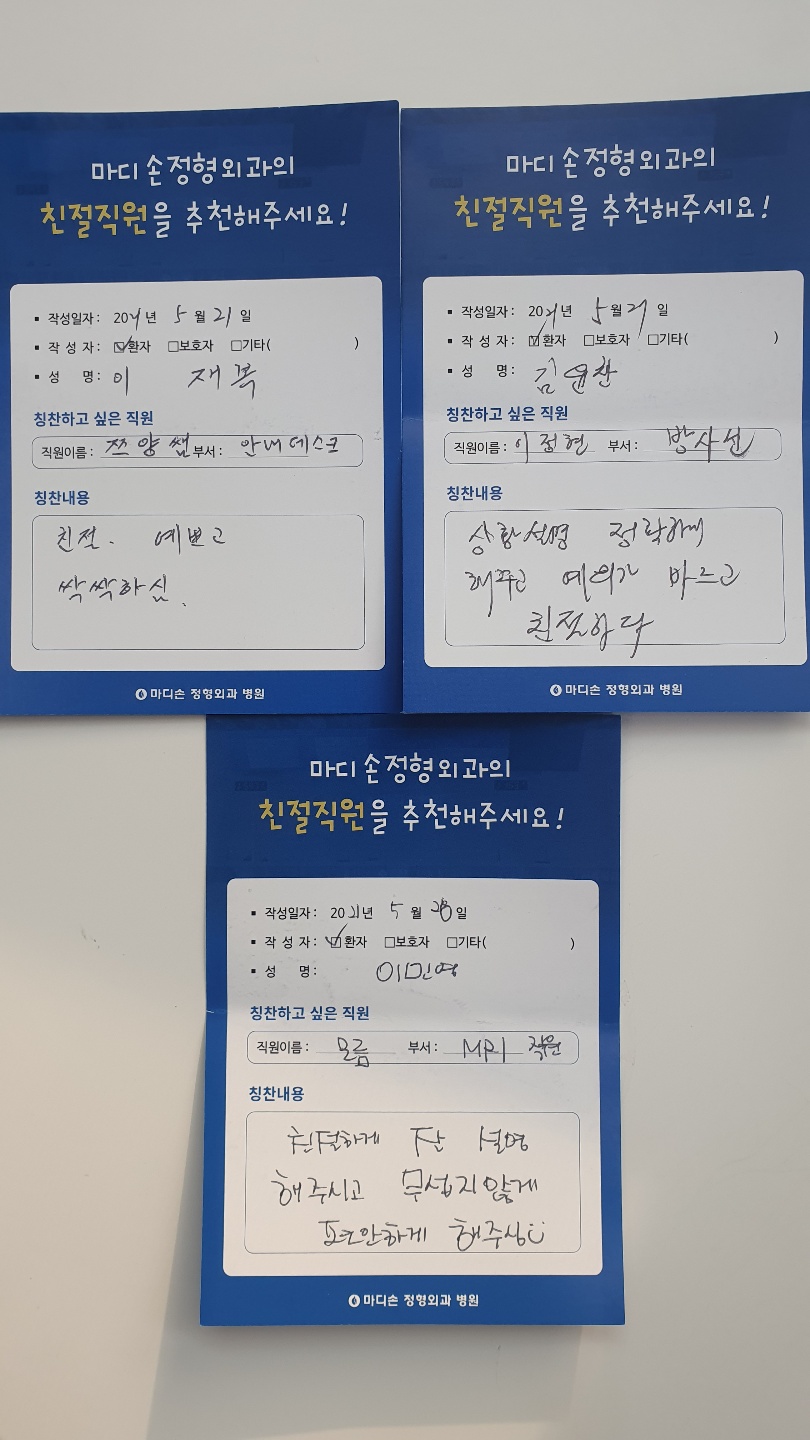 마디손정형외과의
친절직원을 추천해주세요!
▪ 작성일자: 2021년 5월 21일
▪ 작 성 자: ☑환자 □보호자 □기타( )
▪ 성 명: 이 재복
칭찬하고 싶은 직원
직원이름: 쯔양쌤 부서: 안내데스크
칭찬내용
친절. 예쁘고
싹싹하심.
마디손 정형외과 병원
마디손정형외과의
친절직원을 추천해주세요!
▪ 작성일자: 2021년 5월 21일
▪ 작 성 자: ☑환자 □보호자 □기타( )
▪ 성 명: 김윤찬
칭찬하고 싶은 직원
직원이름: 이정현 부서: 방사선
칭찬내용
상황설명 정확하게
해주고 예의가 바르고
친절하다
마디손 정형외과 병원
마디손정형외과의
친절직원을 추천해주세요!
▪ 작성일자: 2021년 5월 일
▪ 작 성 자: ☑환자 □보호자 □기타( )
▪ 성 명: 이민영
칭찬하고 싶은 직원
직원이름: 모름 부서: MRI 직원
칭찬내용
친절하게 잘 설명
해주시고 무섭지않게
편안하게 해주심
마디손 정형외과 병원